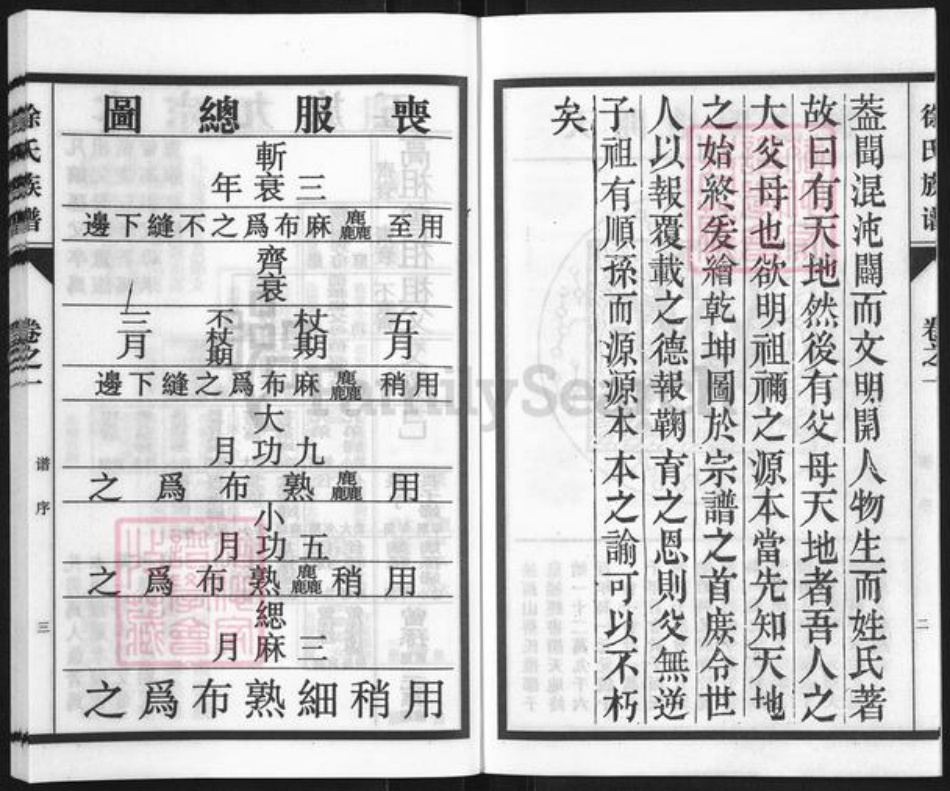 蓋聞混沌闢而文明開人物生而姓氏著
故曰有天地然後有父母天地者吾人之
大父母也欲明祖禰之源本當先知天地
之始終爰繪乾坤圖於宗譜之首庻令世
人以報覆載之德報鞠育之恩則父無逆
子祖有順孫而源源本本之諭可以不朽
矣
徐氏族谱
卷之一
二
喪服總圖
斬衰三年
用至麤麻布爲之不縫下邊
齊衰
五月
杖期
不杖期
三月
用稍麤麻布爲之縫下邊
大功九月
用麤熟布爲之
小功五月
用稍麤熟布爲之
緦麻三月
用稍細熟布爲之
徐氏族譜
卷之一
谱序
三
FamilySearch